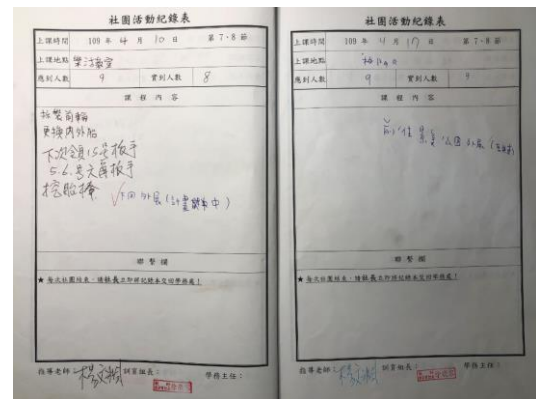 社團活動紀錄表
上課時間 109 年 4 月 10 日 第 7、8 節
上課地點 樂活教室
應到人數 9 實到人數 8
課程內容
拉製前輪
更換內外胎
下次全員15号板手
5.6.号六角板手
挖胎棒
下回外展(計畫購車中)
聯繫欄
★每次社團結束,請組長立即將紀錄本交回學務處!
指導老師: 訓育組長: 學務主任:
社團活動紀錄表
上課時間 109 年 4 月 17 日 第 7、8 節
上課地點
應到人數 9 實到人數
課程內容
前往
公園外展
聯繫欄
★每次社團結束,請組長立即將紀錄本交回學務處!
指導老師: 訓育組長: 學務主任: